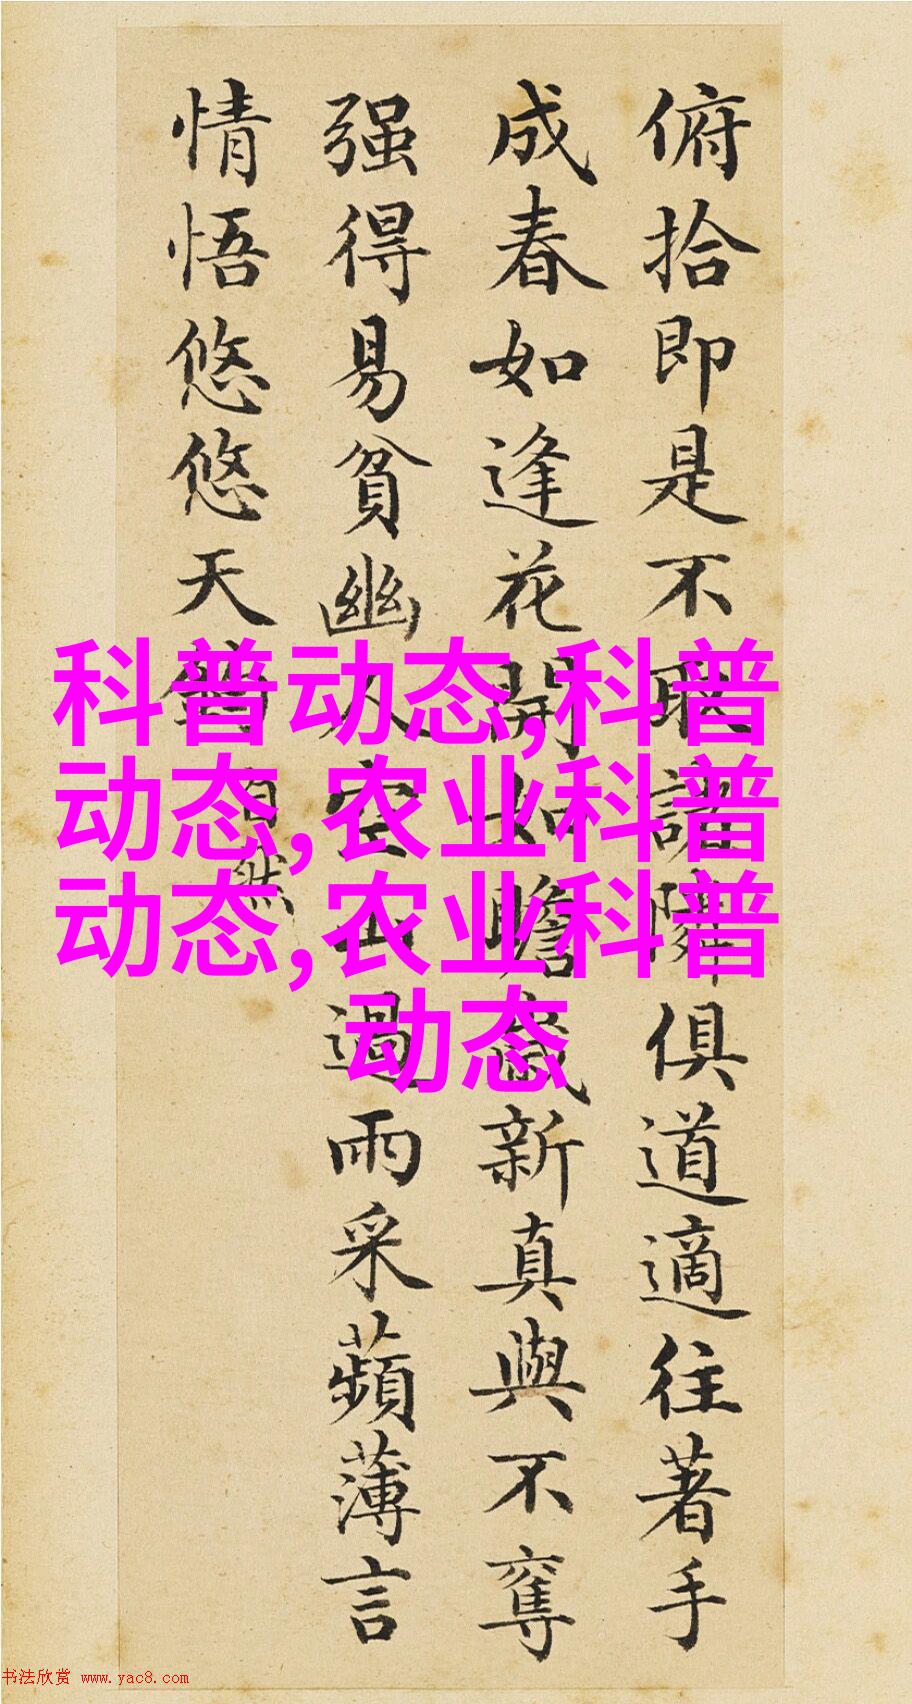 俯拾即是不取諸隣俱道適往著手
成春如逢花開如瞻歲新真與不奪
强得易貧幽人空山過雨采蘋薄言
情悟悠悠天鈞
自然
科普动态,科普
动态,农业科普
动态,农业科普
动态
书法欣赏 www.yac8.com